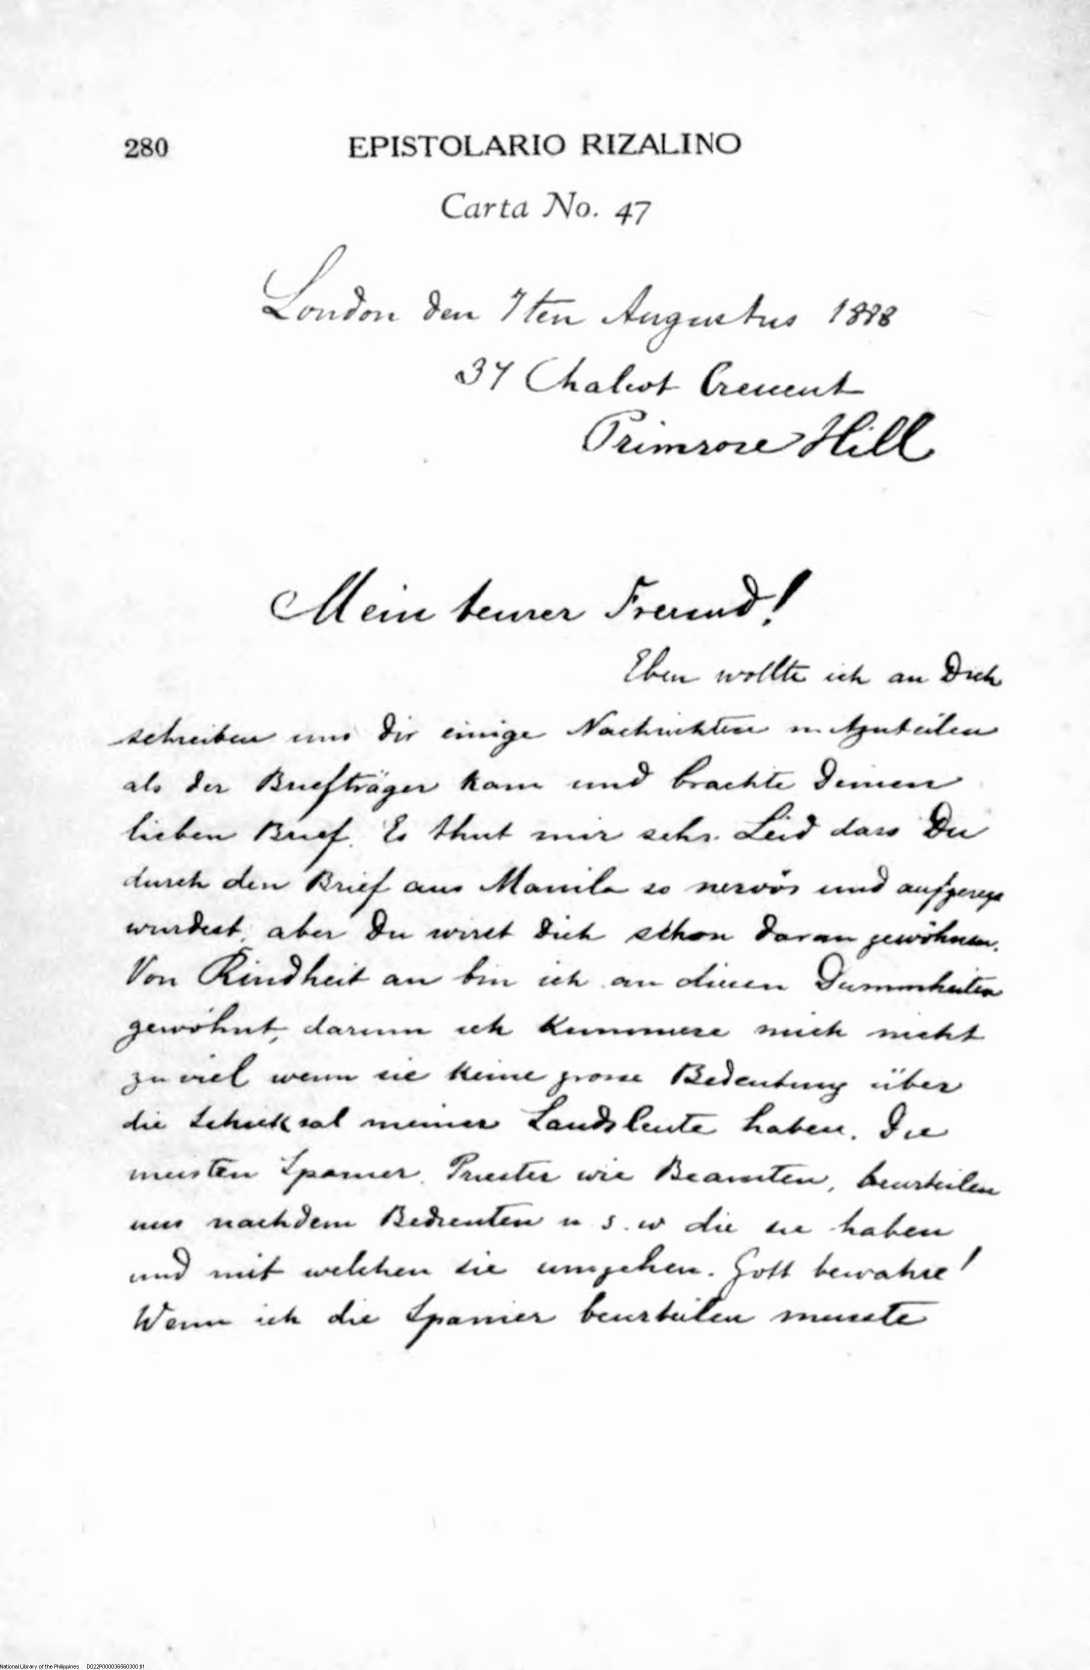 280
EPISTOLARIO RIZALINO
Carta No. 47
London den 7ten Augustus 1888
37 Chalcot Crescent
Primrose Hill
Mein teurer Freund!
Eben wollte ich an Dich
schreiben um dir einige Nachrichten mitzuteilen
als der Briefträger kam und brachte Deinen
lieben Brief. Es thut mir sehr Leid dass Du
durch den Brief aus Manila so nervös und aufgeregt
wurdest, aber Du wirst Dich schon daran gewöhnen.
Von Kindheit an bin ich an diesen Dummheiten
gewöhnt, darum ich kummere mich nicht
zu viel wenn sie keine grosse Bedeutung über
die Schicksal meiner Landsleute haben. Die
meisten Spanier, Priester wie Beamten, beurteilen
uns nach dem Bedienten u. s. w die sie haben
und mit welchen sie umgehen. Gott bewahre!
Wenn ich die Spanier beurteilen musste
National Library of the Philippines